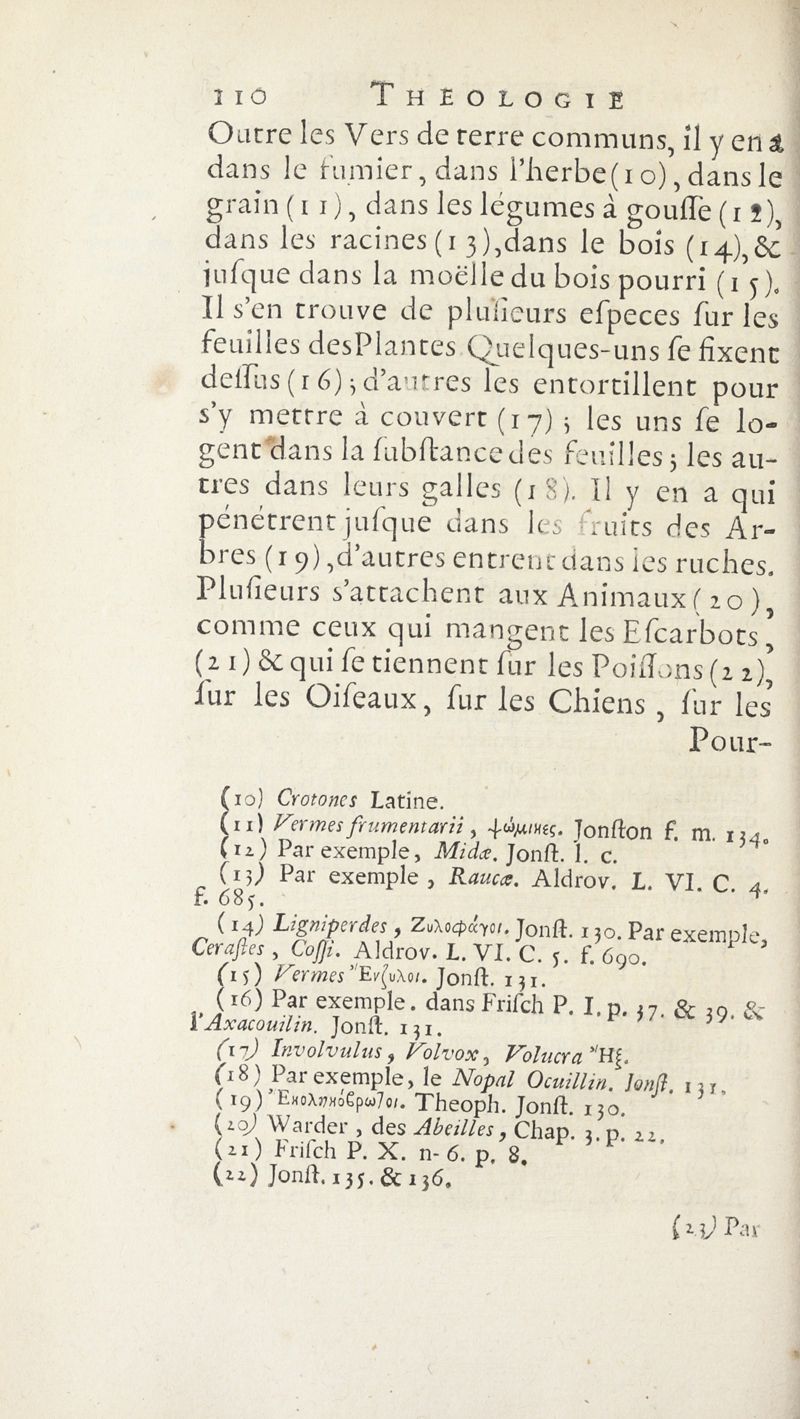 110 THEOLOGIE
Outre les Vers de terre communs, il y en a
dans le fumier, dans l'herbe(10), dans le
grain (11), dans les légumes à gouſſe (12),
dans les racines (13),dans le bois (14),&
juſque dans la moëlle du bois pourri (15).
Il s'en trouve de pluſieurs eſpeces ſur les
feuilles desPlantes Quelques-uns ſe fixent
deſſus (16); d'autres les entortillent pour
s'y mettre à couvert (17); les uns ſe lo-
gent dans la ſubſtance des feuilles; les au-
tres dans leurs galles (18). Il y en a qui
pénétrent juſque dans les fruits des Ar-
bres (19),d'autres entrent dans les ruches.
Pluſieurs s'attachent aux Animaux (20),
comme ceux qui mangent les Eſcarbots,
(21) & qui ſe tiennent ſur les Poiſſons (22),
ſur les Oiſeaux, ſur les Chiens, ſur les
Pour-
(10) Crotones Latine.
(11) Vermes frumentarii, ψώμινες. Jonſton f. m. 134.
(12) Par exemple, Midæ. Jonſt. l. c.
(13) Par exemple, Raucæ. Aldrov. L. VI. C. 4.
f. 685.
(14) Ligniperdes, Ζυλοφάγοι. Jonſt. 130. Par exemple,
Ceraſtes, Coſſi. Aldrov. L. VI. C. 5. f. 690.
(15) Vermes Ἔνξυλοι. Jonſt. 131.
(16) Par exemple. dans Friſch P. I. p. 37. & 39. &
l'Axacouilin. Jonſt. 131.
(17) Involvulus, Volvox, Volucra Ἤξ.
(18) Par exemple, le Nopal Ocuillin. Jonſt. 131.
(19) Theoph. Jonſt. 130.
(20) Warder, des Abeilles, Chap. 3. p. 22.
(21) Friſch P. X. n- 6. p. 8.
(22) Jonſt. 135. & 136.
(23) Par